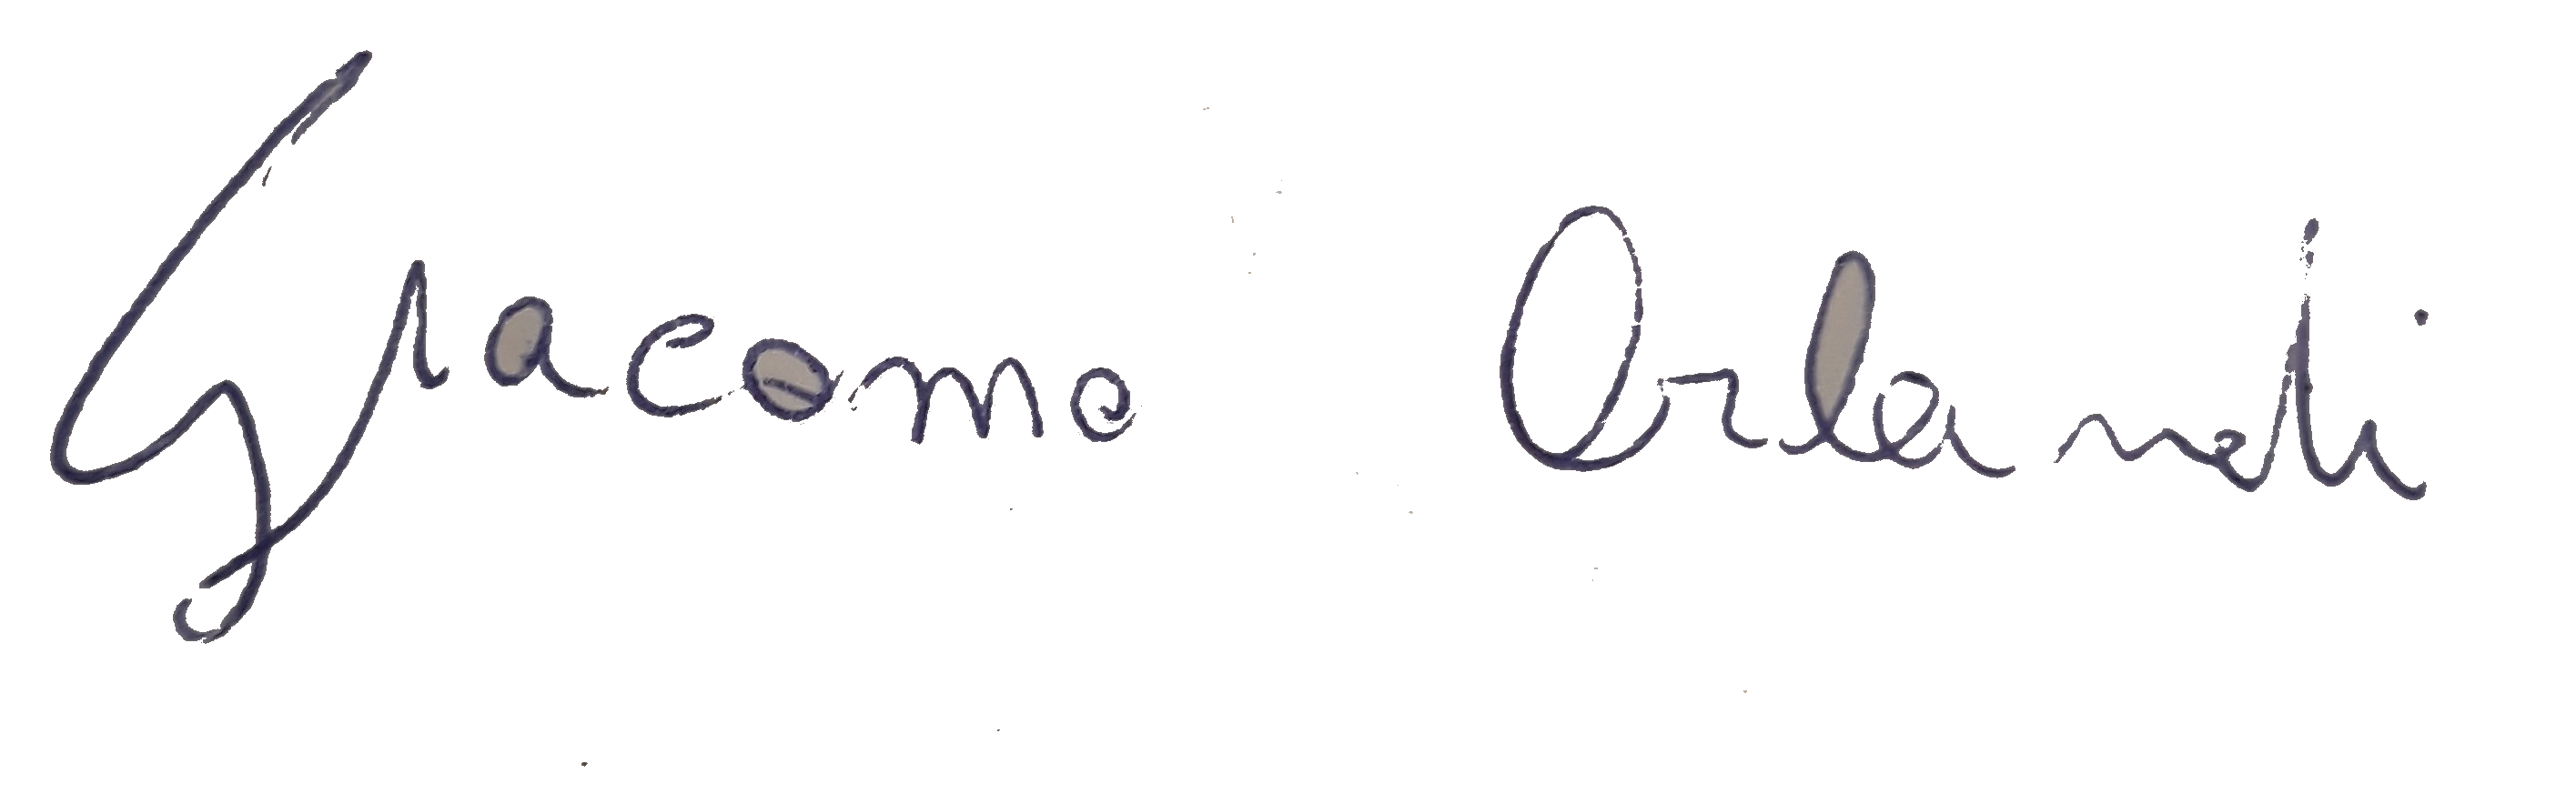 Giacomo Orlandi